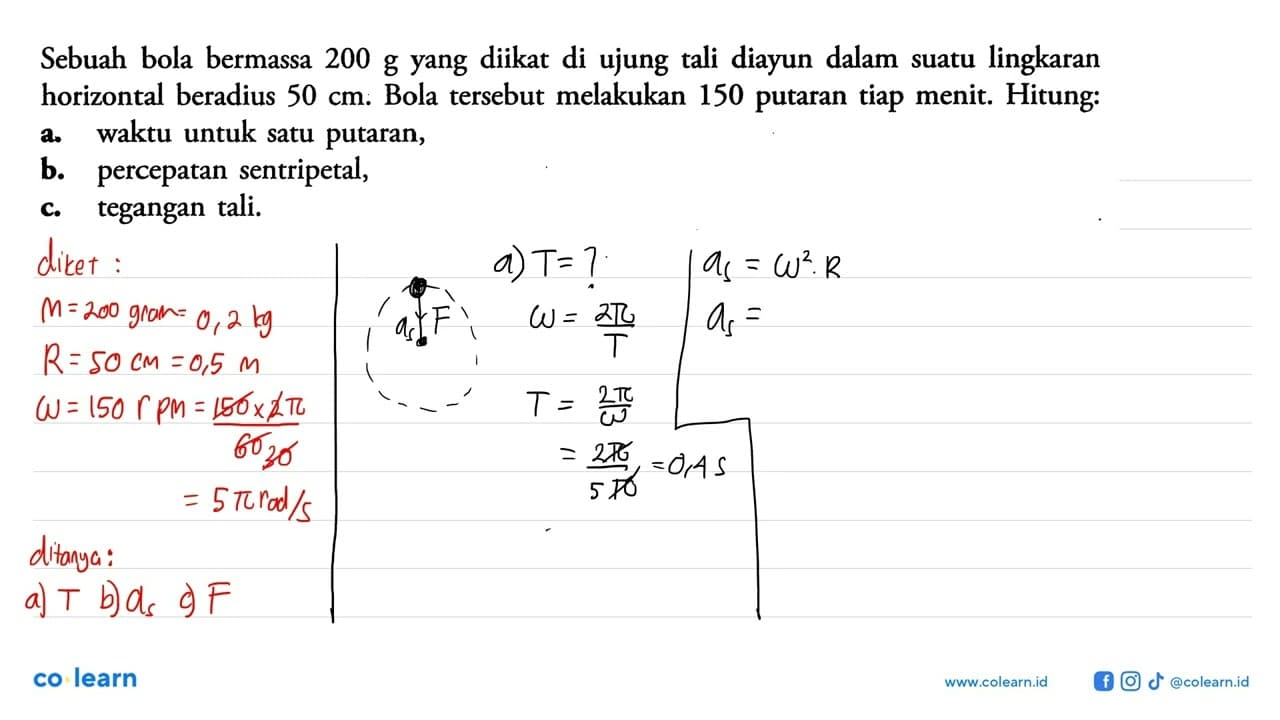 Sebuah bola bermassa 200 g yang diikat di ujung tali diayun dalam suatu lingkaran
horizontal beradius 50 cm. Bola tersebut melakukan 150 putaran tiap menit. Hitung:
a. waktu untuk satu putaran,
b. percepatan sentripetal,
c. tegangan tali.
diket :
M = 200 gram = 0,2 kg
R = 50 cm = 0,5 m
ω = 150 rpm = 150 x 2π
60 30
= 5π rad/s
ditanya:
a) T b) as c) F
as F
a) T = ?
ω = 2π
T
T = 2π
ω
= 2π = 0,4 s
5π
as = ω². R
as =
co learn
www.colearn.id
@colearn.id